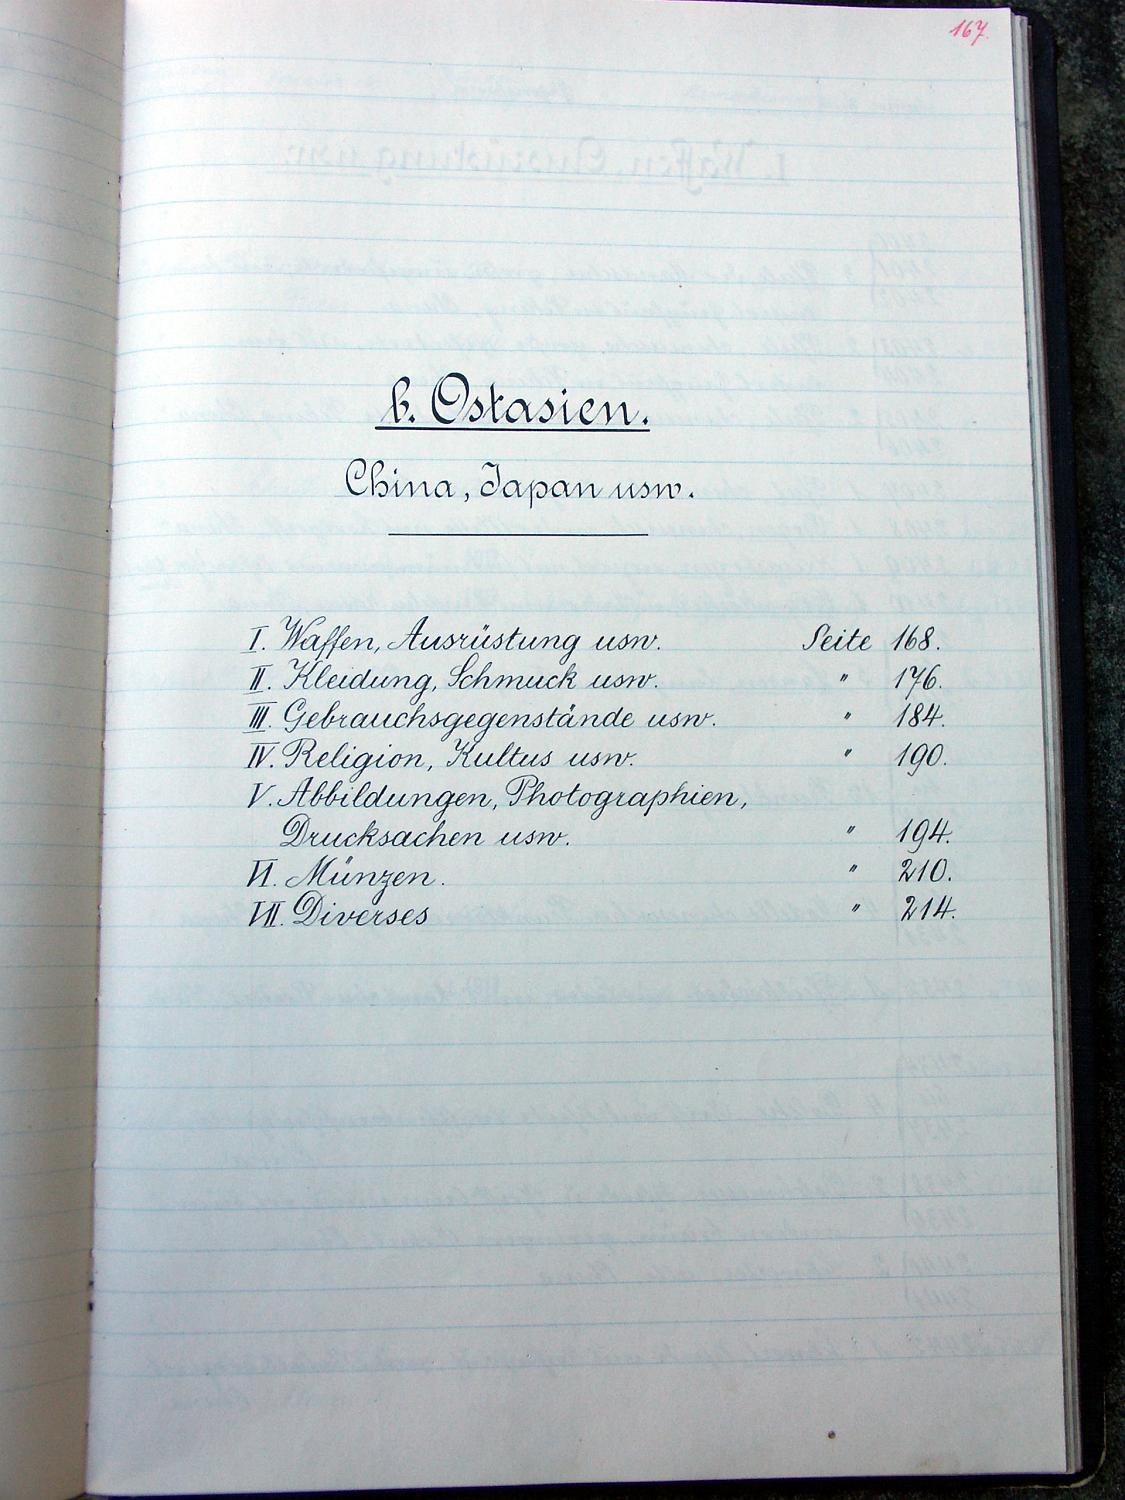 167.
b. Ostasien.
China, Japan usw.
I. Waffen, Ausrüstung usw. Seite 168.
II. Kleidung, Schmuck usw. " 176.
III. Gebrauchsgegenstände usw. " 184.
IV. Religion, Kultus usw. " 190.
V. Abbildungen, Photographien,
Drucksachen usw. " 194.
VI. Münzen. " 210.
VII. Diverses " 214.